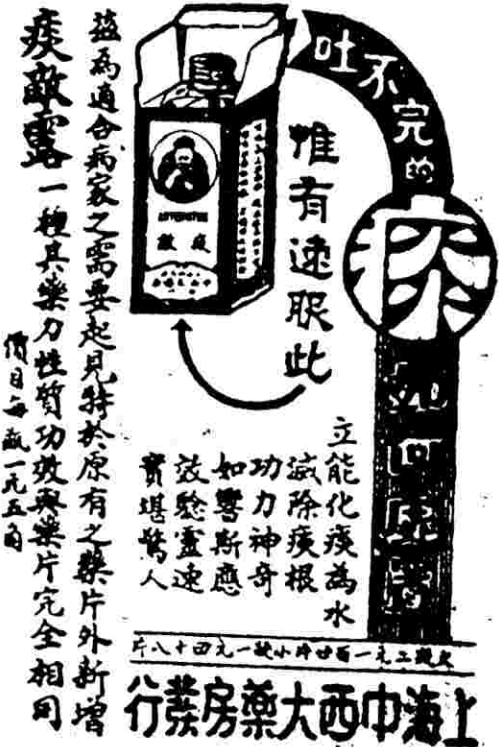 吐不完的痰
如何處置
惟有速服此
痰敵
立能化痰為水
滅除痰根
功力神奇
如響斯應
效驗靈速
實堪驚人
茲為適合病家之需要起見特於原有之藥片外新增
痰敵露一種其藥力性質功效與藥片完全相同
價目每瓶一元五角
大號三元一百廿片小號一元四十八片
上海中西大藥房發行